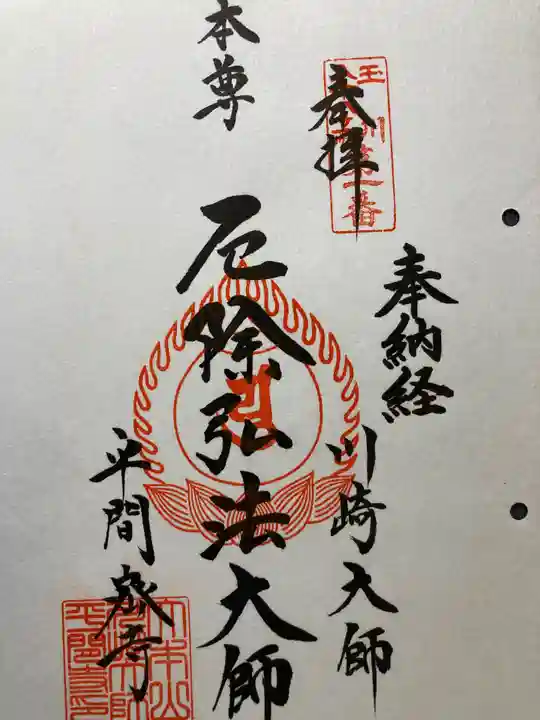 奉納経
奉拝
玉川第一番
川崎大師
本尊
厄除弘法大師
平間寺